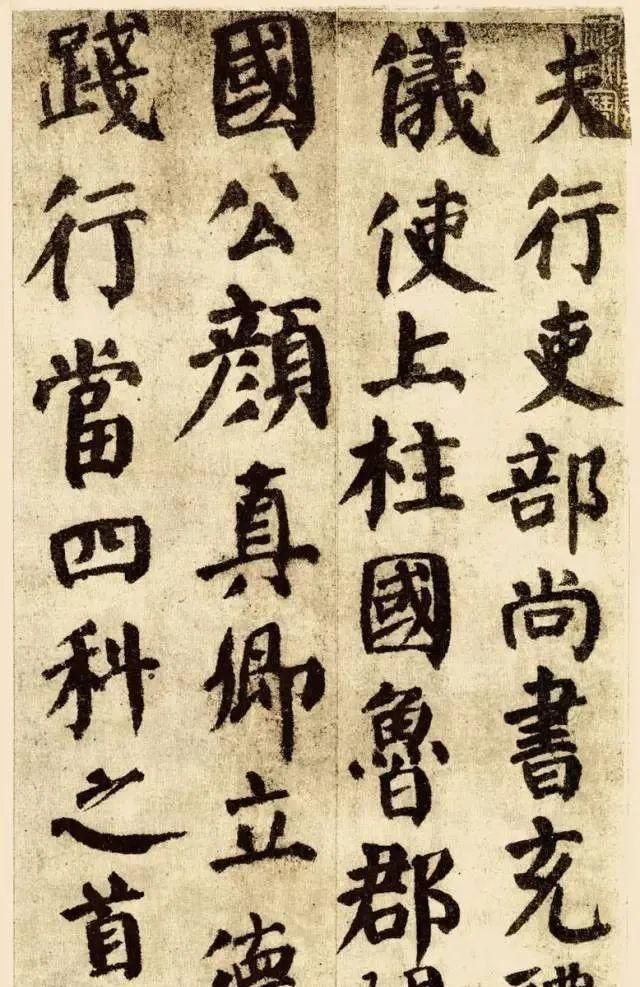 夫行吏部尚書充禮
儀使上柱國魯郡開
國公顔真卿立德
踐行當四科之首